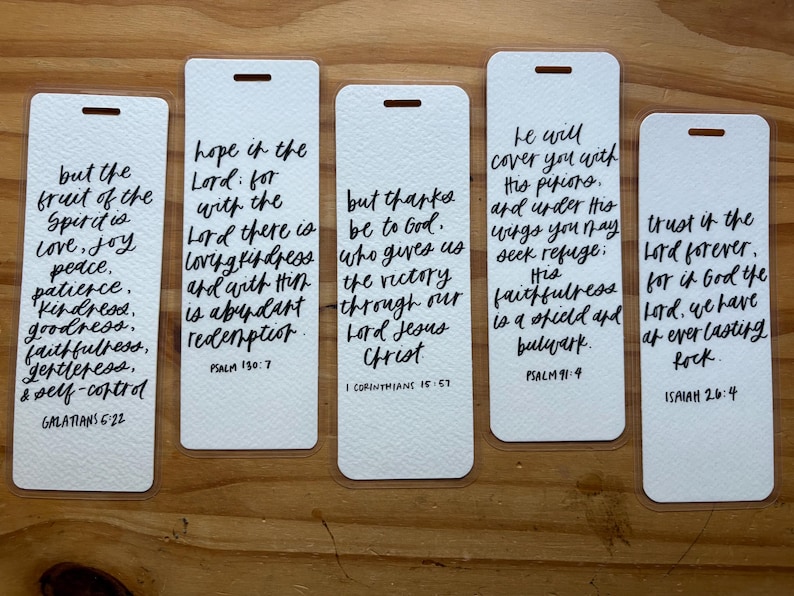 but the
fruit of the
Spirit is
love, joy
peace,
patience,
kindness,
goodness,
faithfulness,
gentleness,
& self-control
GALATIANS 5:22
hope in the
Lord; for
with the
Lord there is
lovingkindness
and with Him
is abundant
redemption.
PSALM 130:7
but thanks
be to God,
who gives us
the victory
through our
Lord Jesus
Christ.
1 CORINTHIANS 15:57
he will
cover you with
His pinions,
and under His
wings you may
seek refuge;
His
faithfulness
is a shield and
bulwark.
PSALM 91:4
trust in the
Lord forever,
for in God the
Lord, we have
an everlasting
Rock.
ISAIAH 26:4